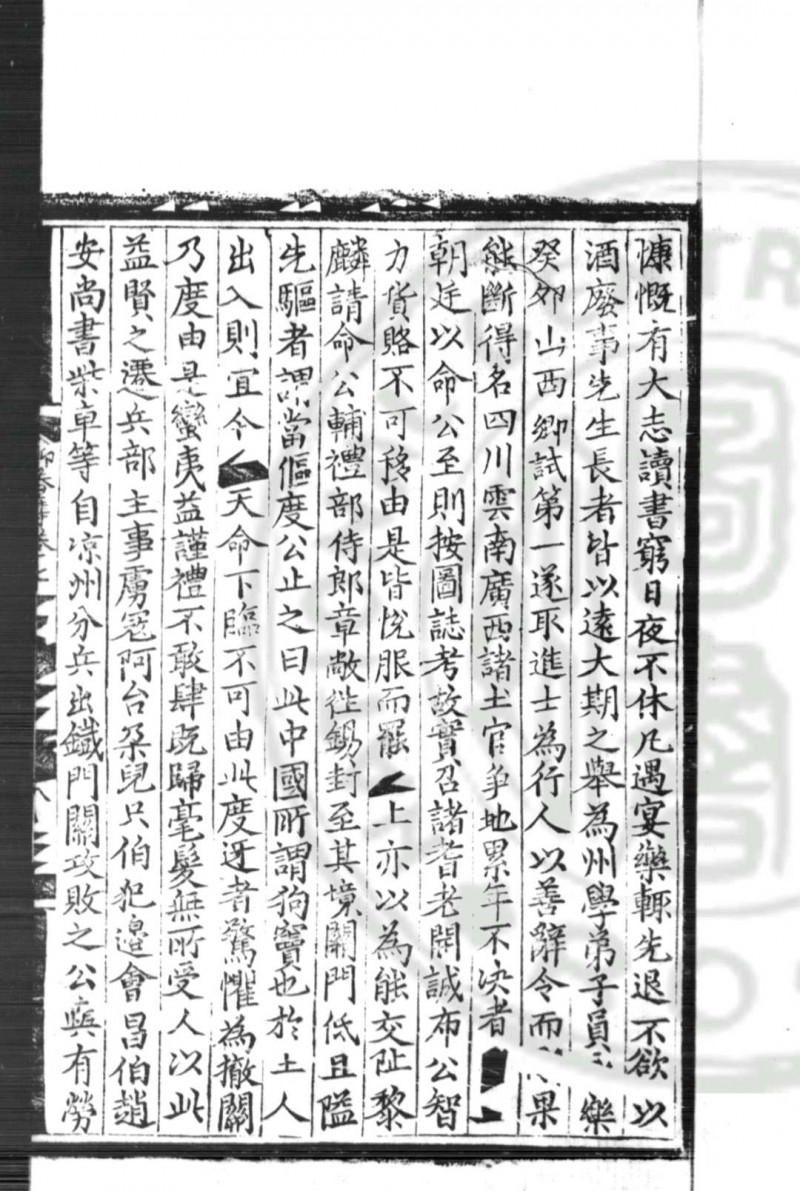 慷慨有大志讀書窮日夜不休凡遇宴樂輒先退不欲以
酒廢事先生長者皆以遠大期之舉為州學弟子員樂
癸卯山西鄉試第一遂取進士為行人以善辭令而果
能斷得名四川雲南廣西諸土官爭地累年不决者
朝廷以命公至則按圖誌考故實召諸耆老開誠布公智
力貨賂不可移由是皆悅服而罷上亦以為能交阯黎
麟請命公輔禮部侍郎章敞徃錫封至其境關門低且隘
先驅者謂當傴度公止之曰此中國所謂狗竇也於土人
出入則冝今天命下臨不可由此度迓者驚懼為撤關
乃度由是蠻夷益謹禮不敢肆既歸毫髮無所受人以此
益賢之遷兵部主事虜冦阿台朶兒只伯犯邉會昌伯趙
安尚書柴車等自凉州分兵出鐵門關攻敗之公與有勞